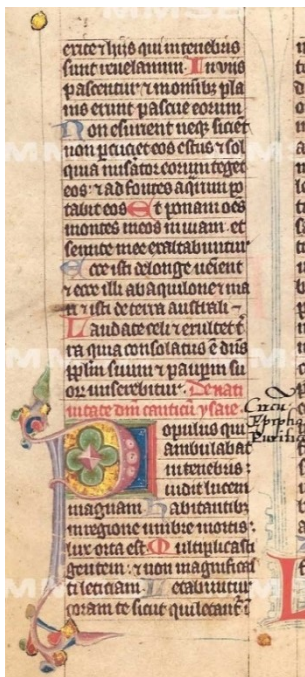 exite ⁊ hiis qui in tenebris
sunt reuelamini. In viis
pascentur ⁊ in omib3 pla
nis erunt pascue eorum
Non esurient neq3 sicient
non percuciet eos estus ⁊ sol
quia miserator eorum reget
eos: ⁊ ad fontes aquarum po
tabit eos Et ponam oēs
montes meos in uiam. et
semite mee exaltabuntur
Ecce isti de longe ueniēt
⁊ ecce illi ab aquilone ⁊ ma
ri ⁊ isti de terra australi
Laudate celi ⁊ exultet tr̄
ra quia consolatus ē dn̄s
ppl̄m suum ⁊ paupm̄ su
or miserebitur. De nati
uitate dn̄i canticū ysaie.
Populus qui
ambulabat
in tenebris:
uidit lucem
magnam Habitantib3
in regione umbre mortis:
lux orta est Multiplicasti
gentem: ⁊ non magnificas
ti leticiam. Letabuntur
coram te sicut qui letant̄
Circū
Epipha
Purifica